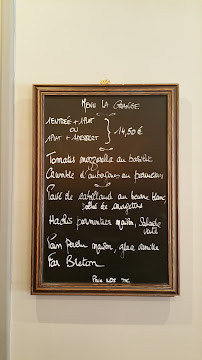 MENU LA GRANGE
1 ENTRÉE + 1 PLAT
OU
1 PLAT + 1 DESSERT
14,50 €
Tomates mozzarella au basilic
Crumble d'aubergines au parmesan
Pavé de cabillaud au beurre blanc
de courgettes
Hachis parmentier maison, Salade
verte
Pain perdu maison, glace vanille
Far Breton
Prix nets TTC